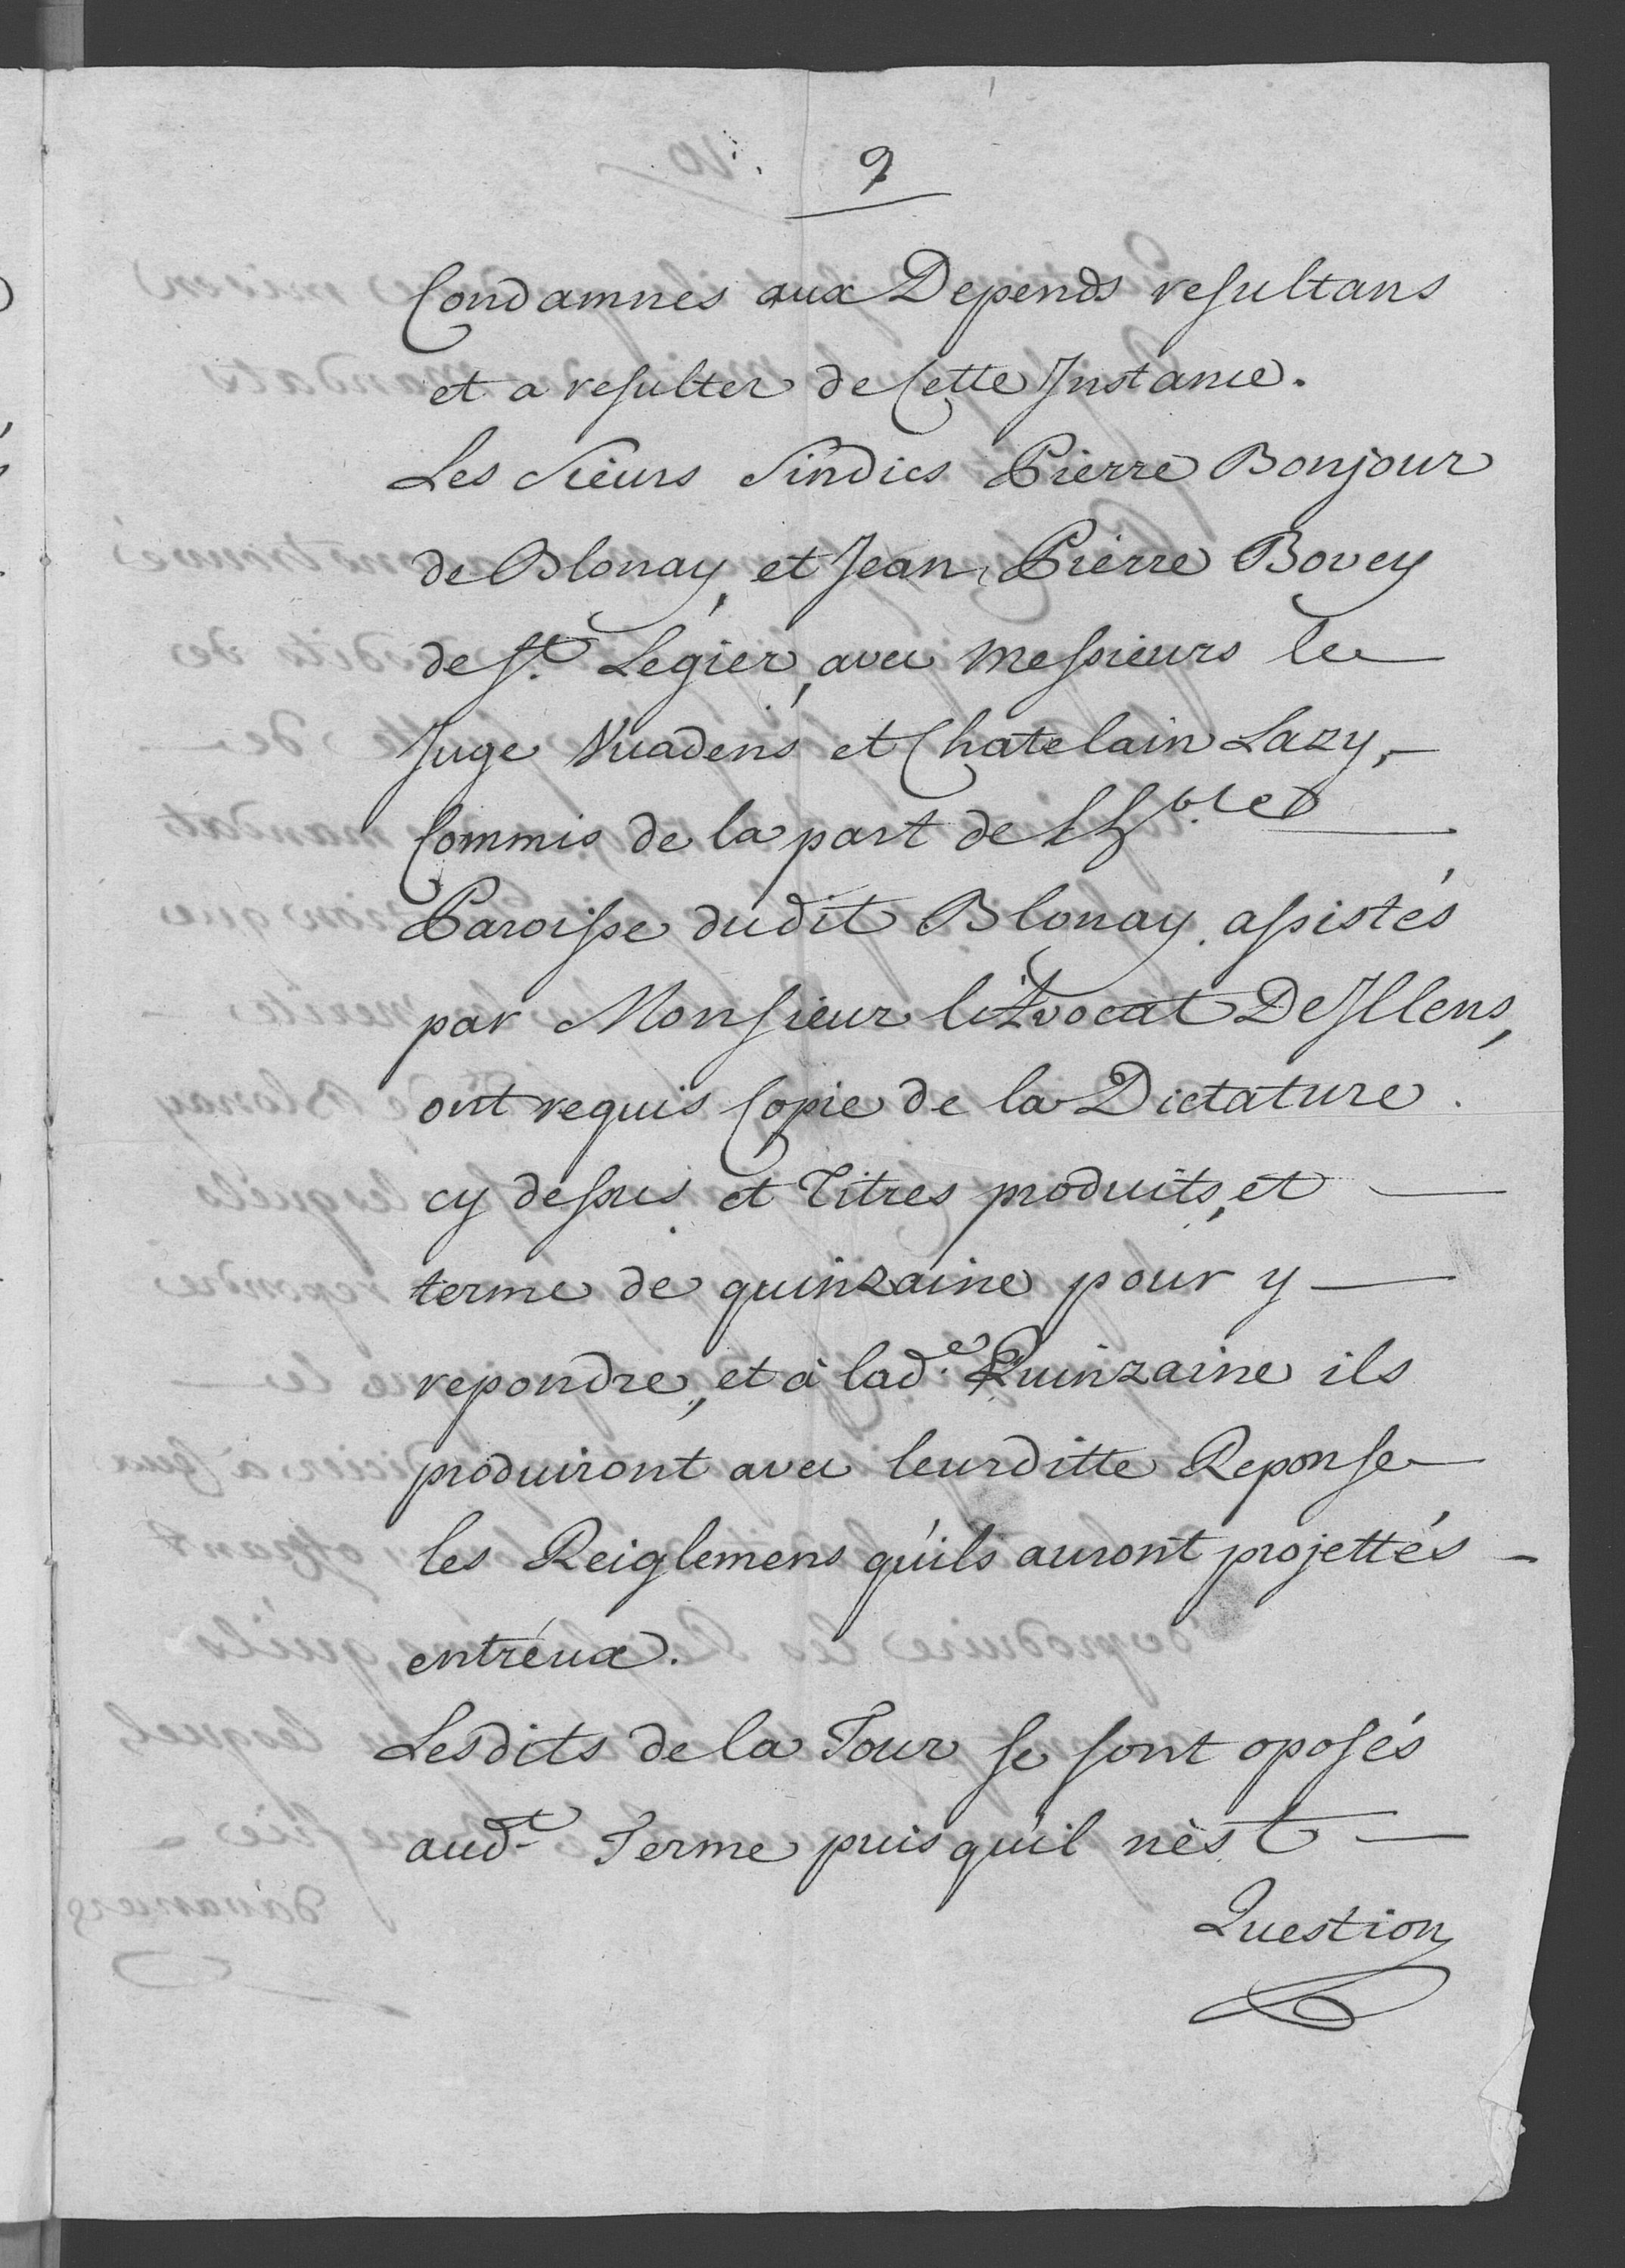 9
Condamnes aux Depends resultans
et a resulter de Cette Instance.
Les Sieurs Sindics Pierre Bonjour
de Blonay, et Jean Pierre Bovey
de St. Legier, avec Messieurs le
Juge Vuadens et Chatelain Lazy,
Commis de la part de l'hble
Paroisse dudit Blonay, assistés
par Monsieur l'Avocat DeIllens,
ont requis Copie de la Dictature
cy dessus et Titres produits, et
terme de quinzaine pour y
repondre, et à lade. Quinzaine ils
produiront avec leurditte Reponse
les Reiglemens qu'ils auront projettés
entr'eux.
Lesdits de la Tour se sont oposés
audt. Terme puis qu'il n'est
Question